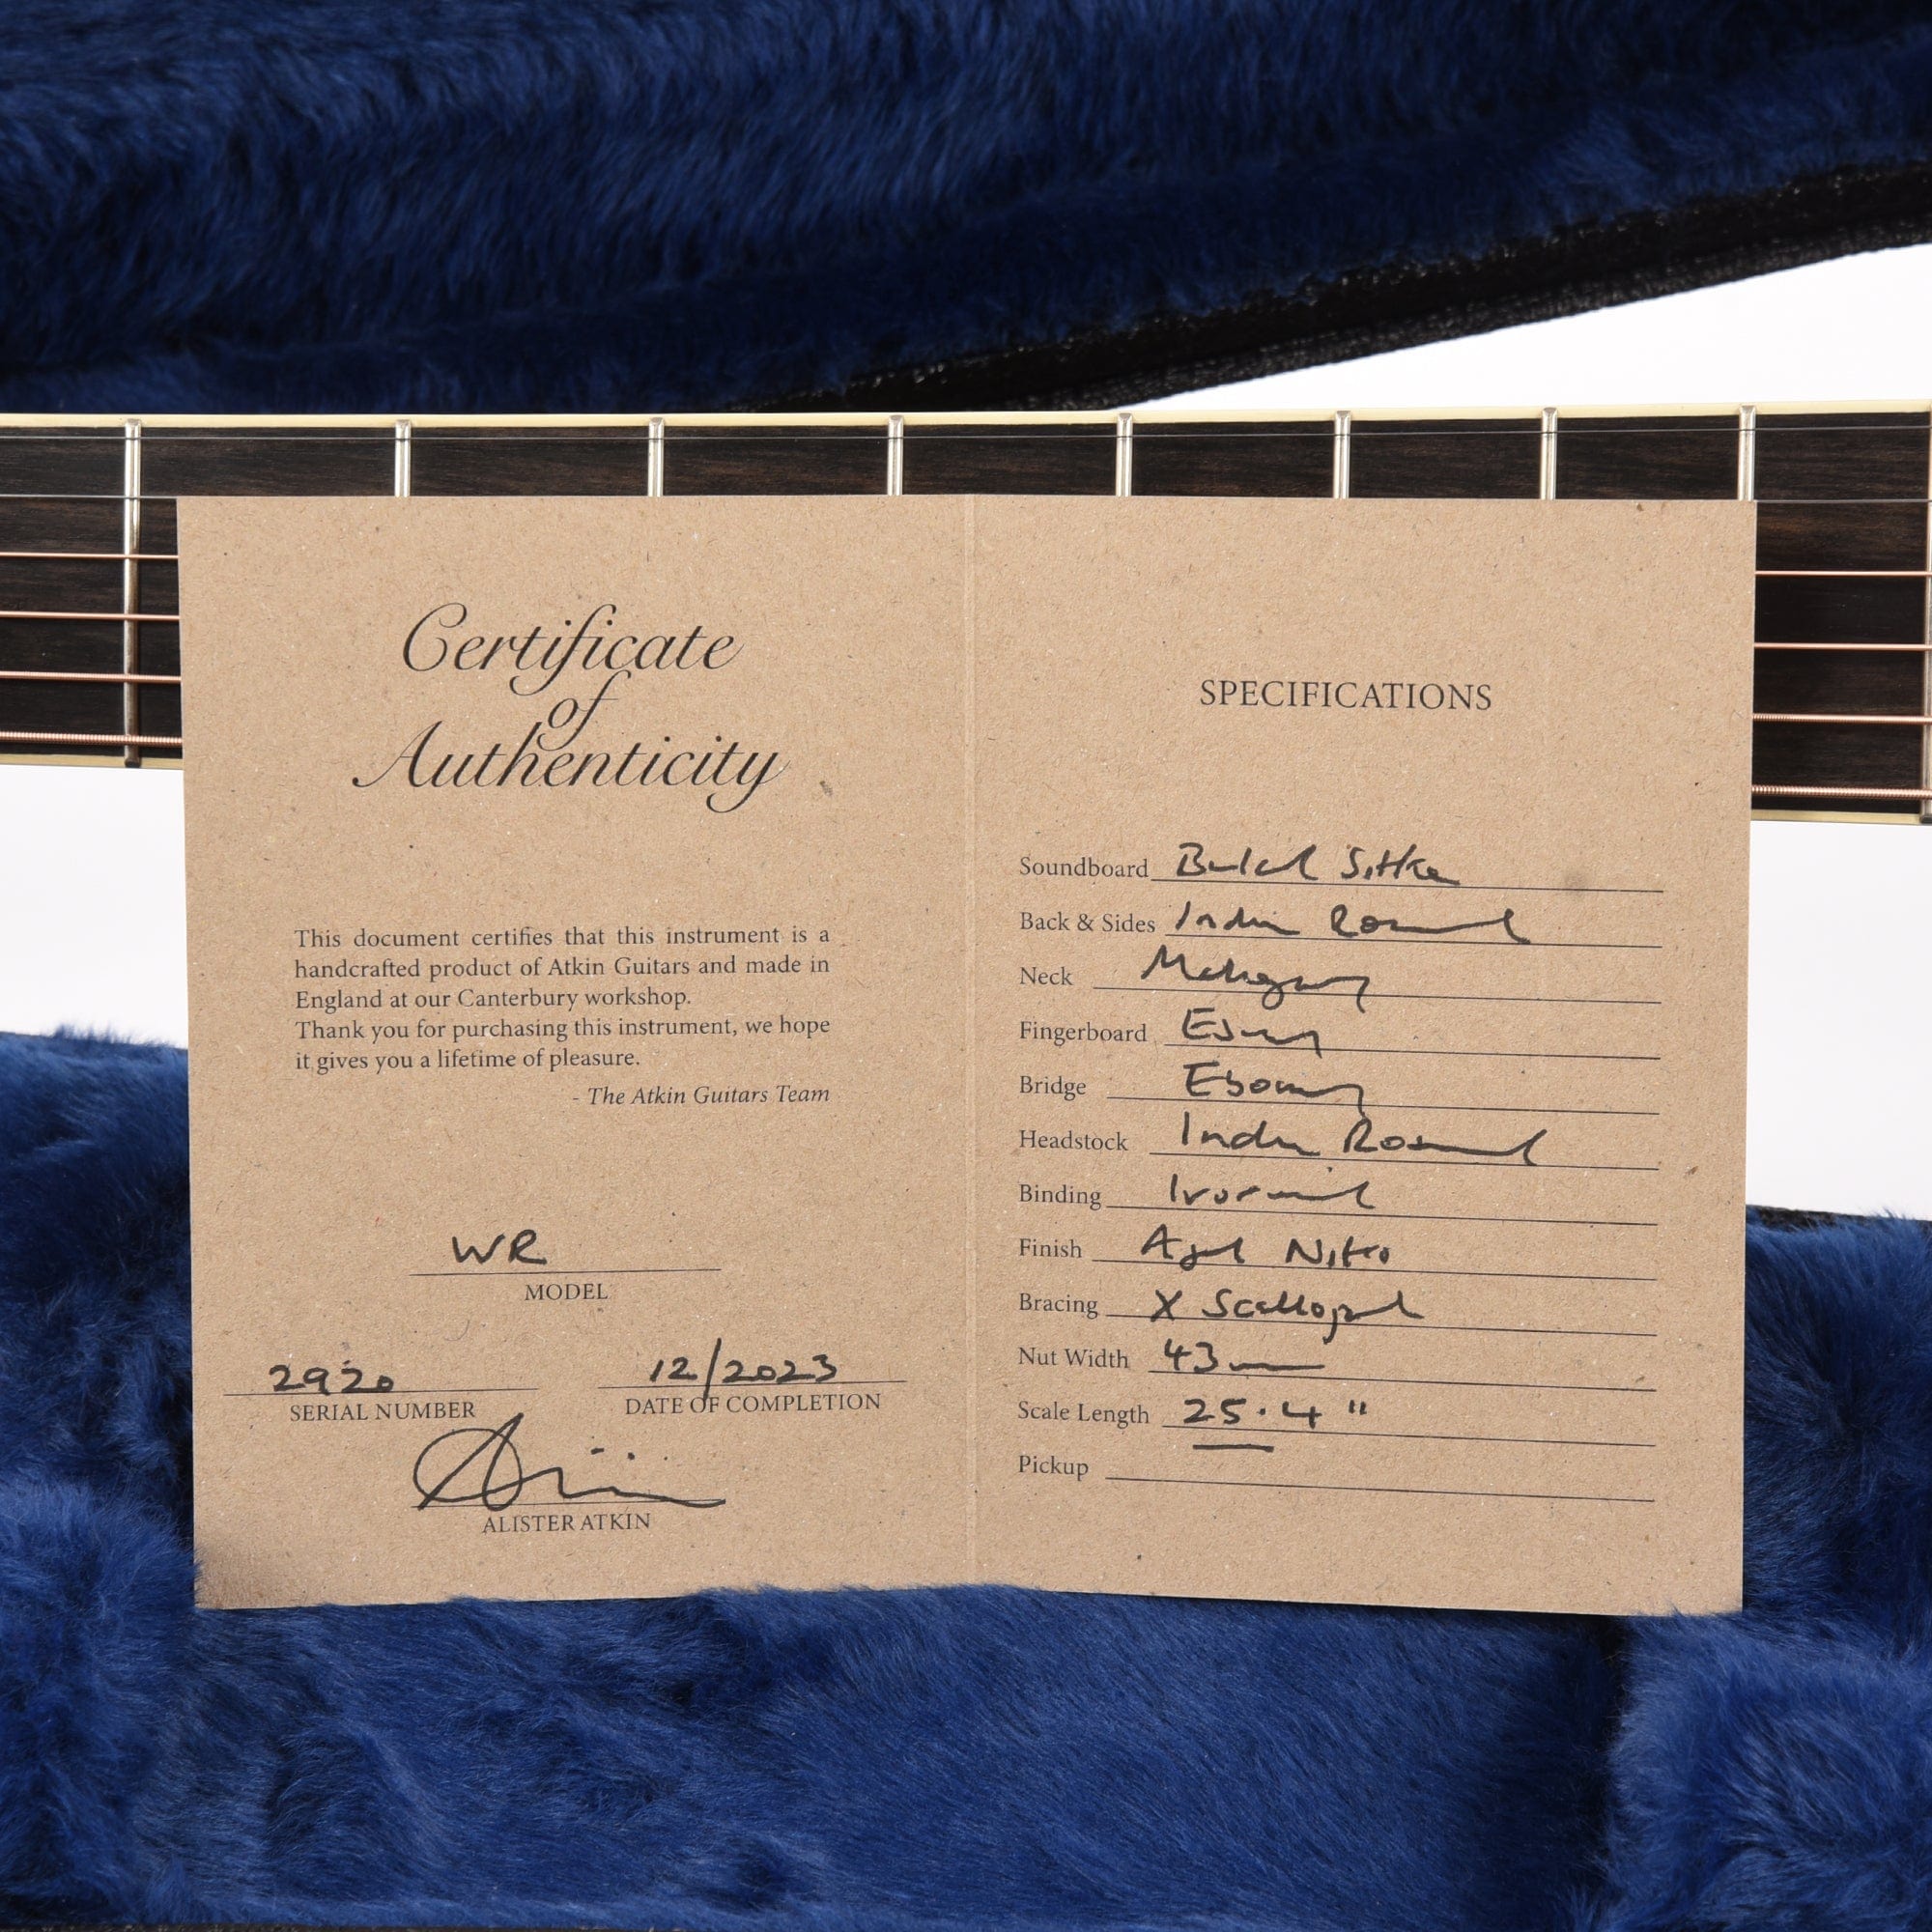 Certificate
of
Authenticity
This document certifies that this instrument is a
handcrafted product of Atkin Guitars and made in
England at our Canterbury workshop.
Thank you for purchasing this instrument, we hope
it gives you a lifetime of pleasure.
- The Atkin Guitars Team
WR
MODEL
2920
SERIAL NUMBER
12/2023
DATE OF COMPLETION
ALISTER ATKIN
SPECIFICATIONS
Soundboard Baked Sitka
Back & Sides Indian Rosewood
Neck Mahogany
Fingerboard Ebony
Bridge Ebony
Headstock Indian Rosewood
Binding Ivoroid
Finish Aged Nitro
Bracing X Scalloped
Nut Width 43mm
Scale Length 25.4"
Pickup